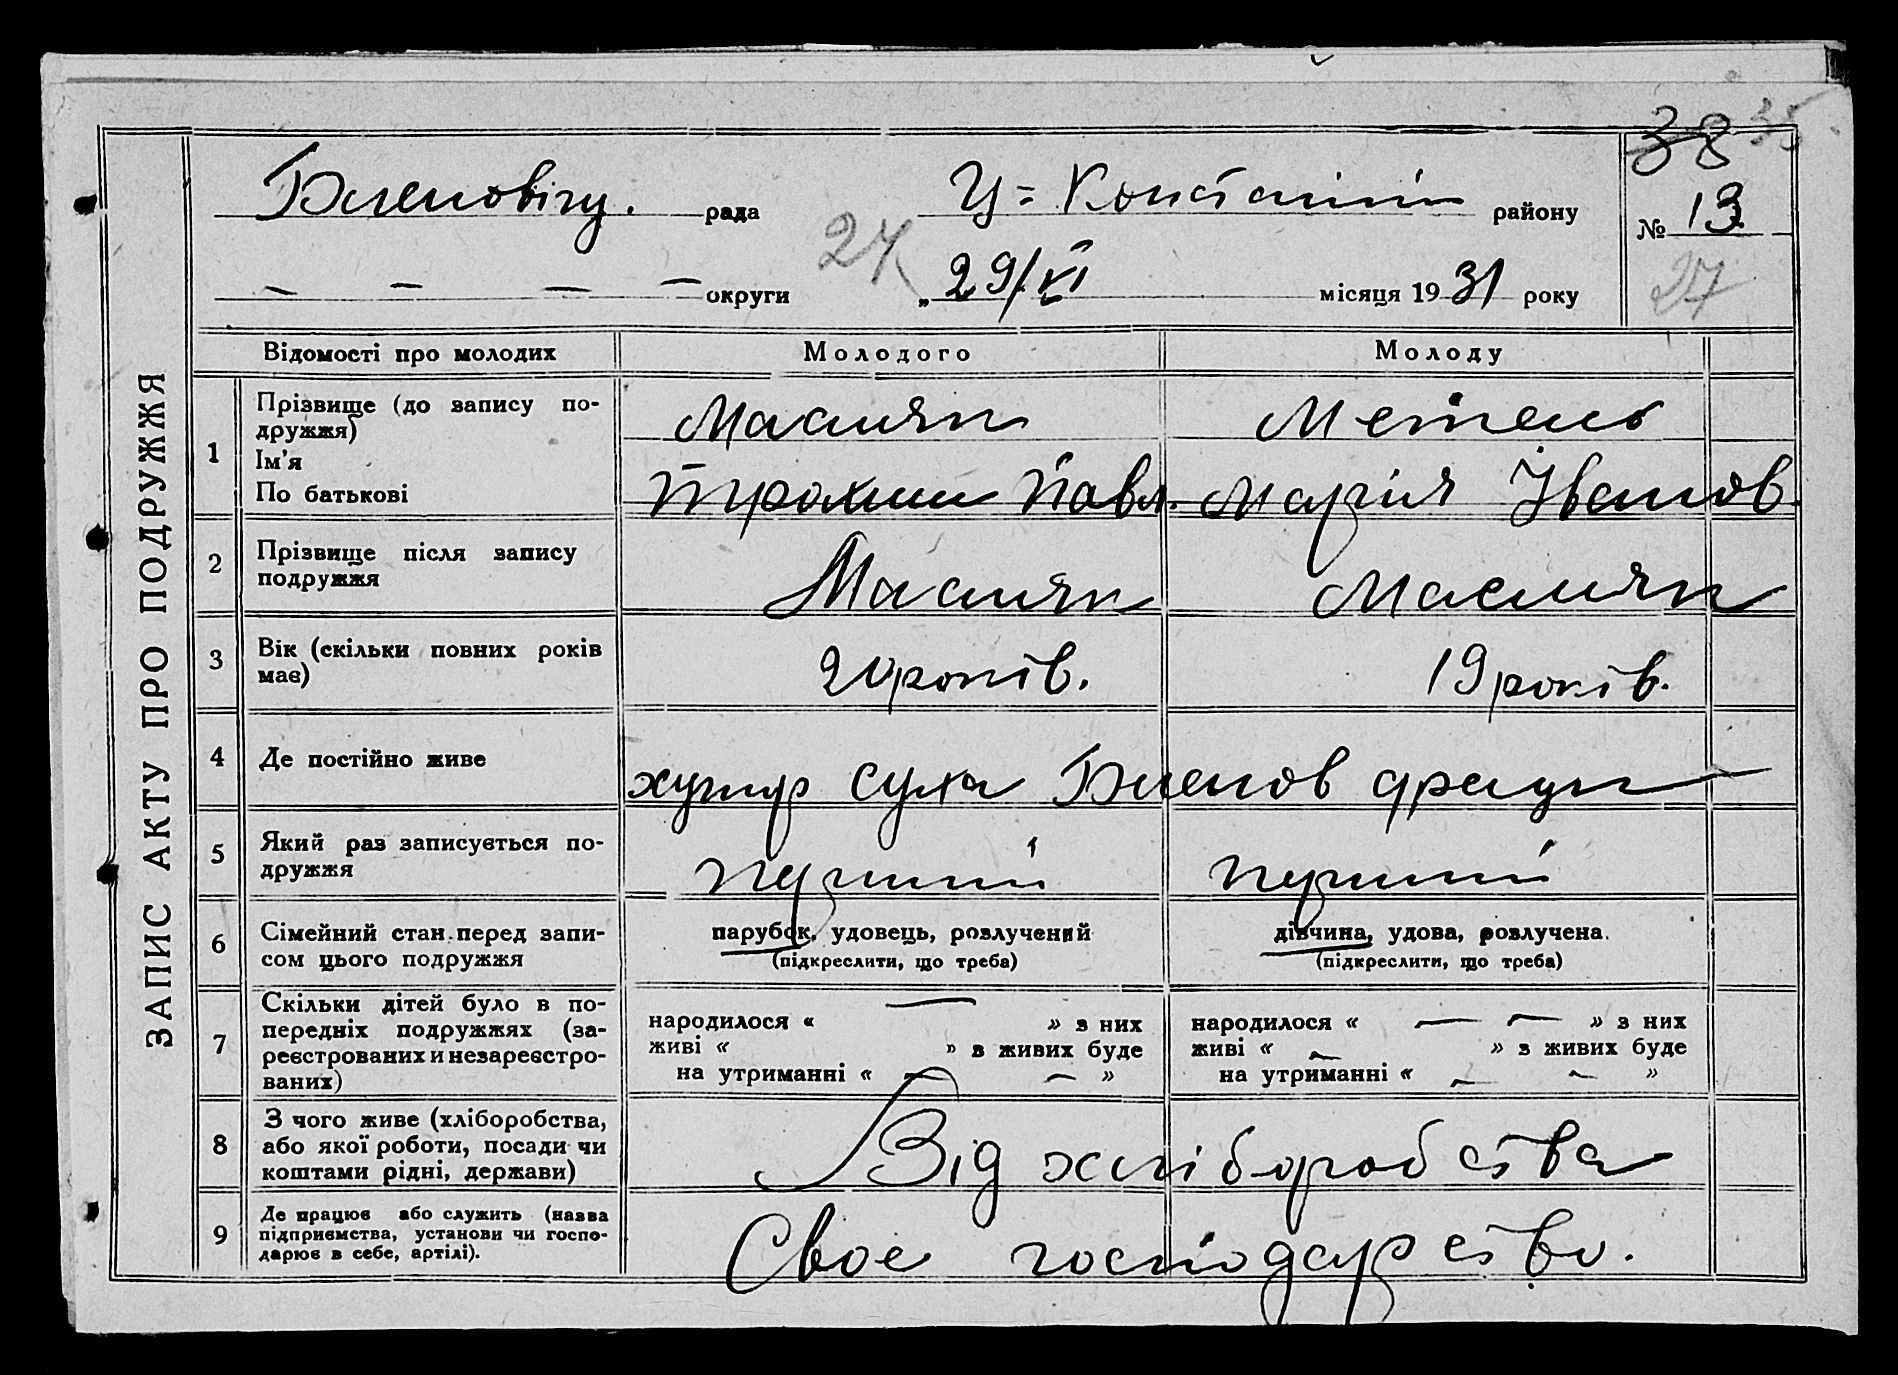 38 35
Биеновізу. рада Ц = Констан район у
№ 13
27
— — — — округи „ 29/VI місяця 1931 року
27
ЗАПИС АКТУ ПРО ПОДРУЖЖЯ
Відомості про молодих Молодого Молоду
1 Прізвище (до запису по-
дружжя) Маслюк Метель
Ім'я
По батькові Трохим Павл. Марія Іванов.
2 Прізвище після запису
подружжя
3 Вік (скільки повних років
має) 20 років. 19 років.
4 Де постійно живе хутір Суха
5 Який раз записується по-
дружжя перший перший
6 Сімейний стан перед запи-
сом цього подружжя
парубок, удовець, розлучений
(підкреслити, що треба)
дівчина, удова, розлучена.
(підкреслити, що треба)
7 Скільки дітей було в по-
передніх подружжях (за-
реєстрованих и незареєстро-
ваних)
народилося « — » з них
живі « » з живих буде
на утриманні « — — »
народилося « — — » з них
живі « — » з живих буде
на утриманні « — — »
8 З чого живе (хліборобства,
або якої роботи, посади чи
коштами рідні, держави) Від хліборобства
9 Де працює або служить (назва
підприємства, установи чи госпо-
дарює в себе, артілі). Своє господарство.